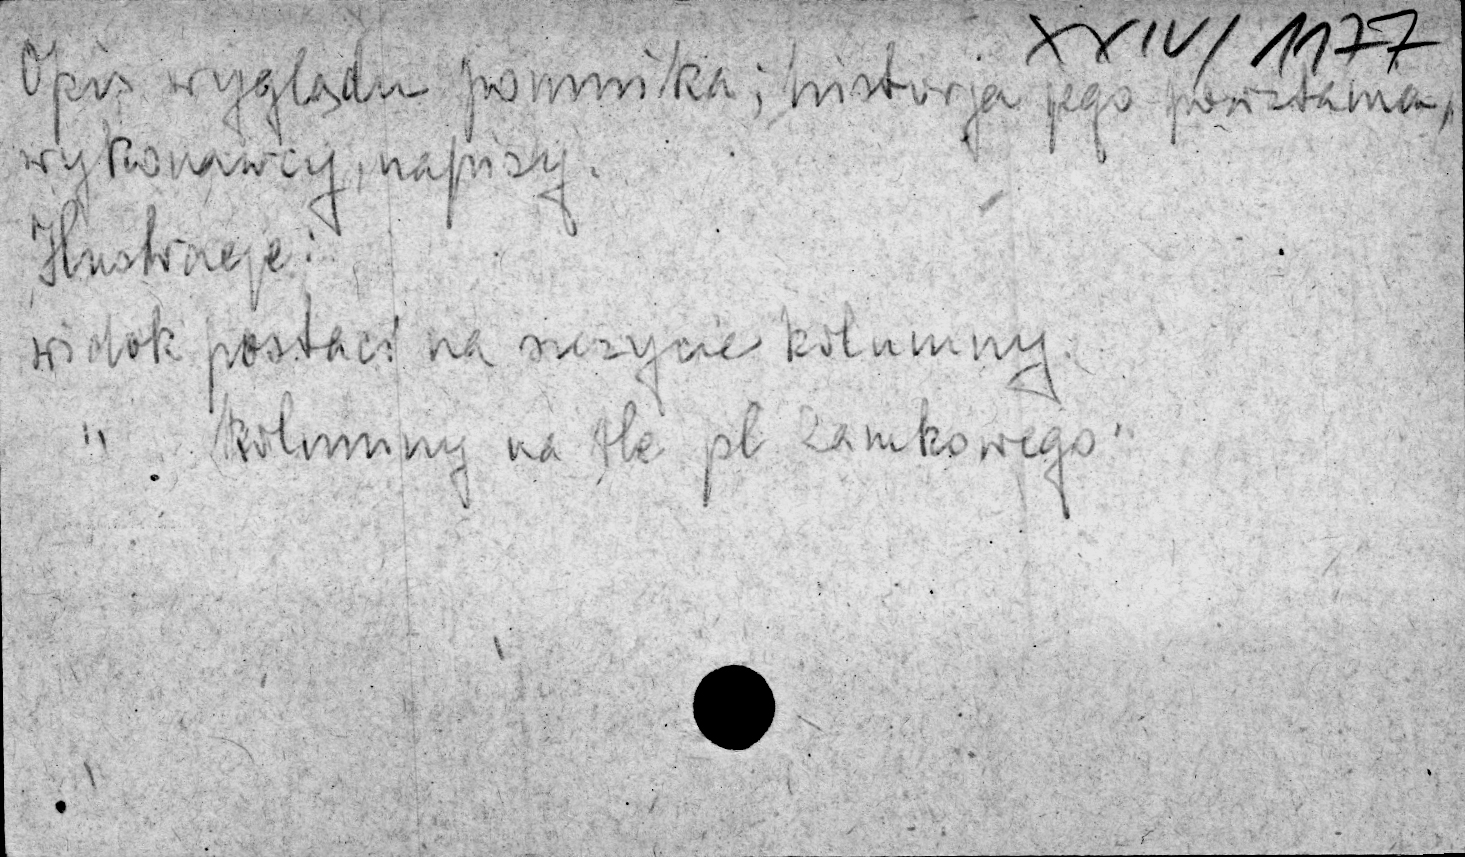 XXIV/1177
Opis wyglądu pomnika; historja jego powstania,
wykonawcy, napisy.
Ilustracje:
widok postaci na szczycie kolumny.
" kolumny na tle pl Zamkowego"